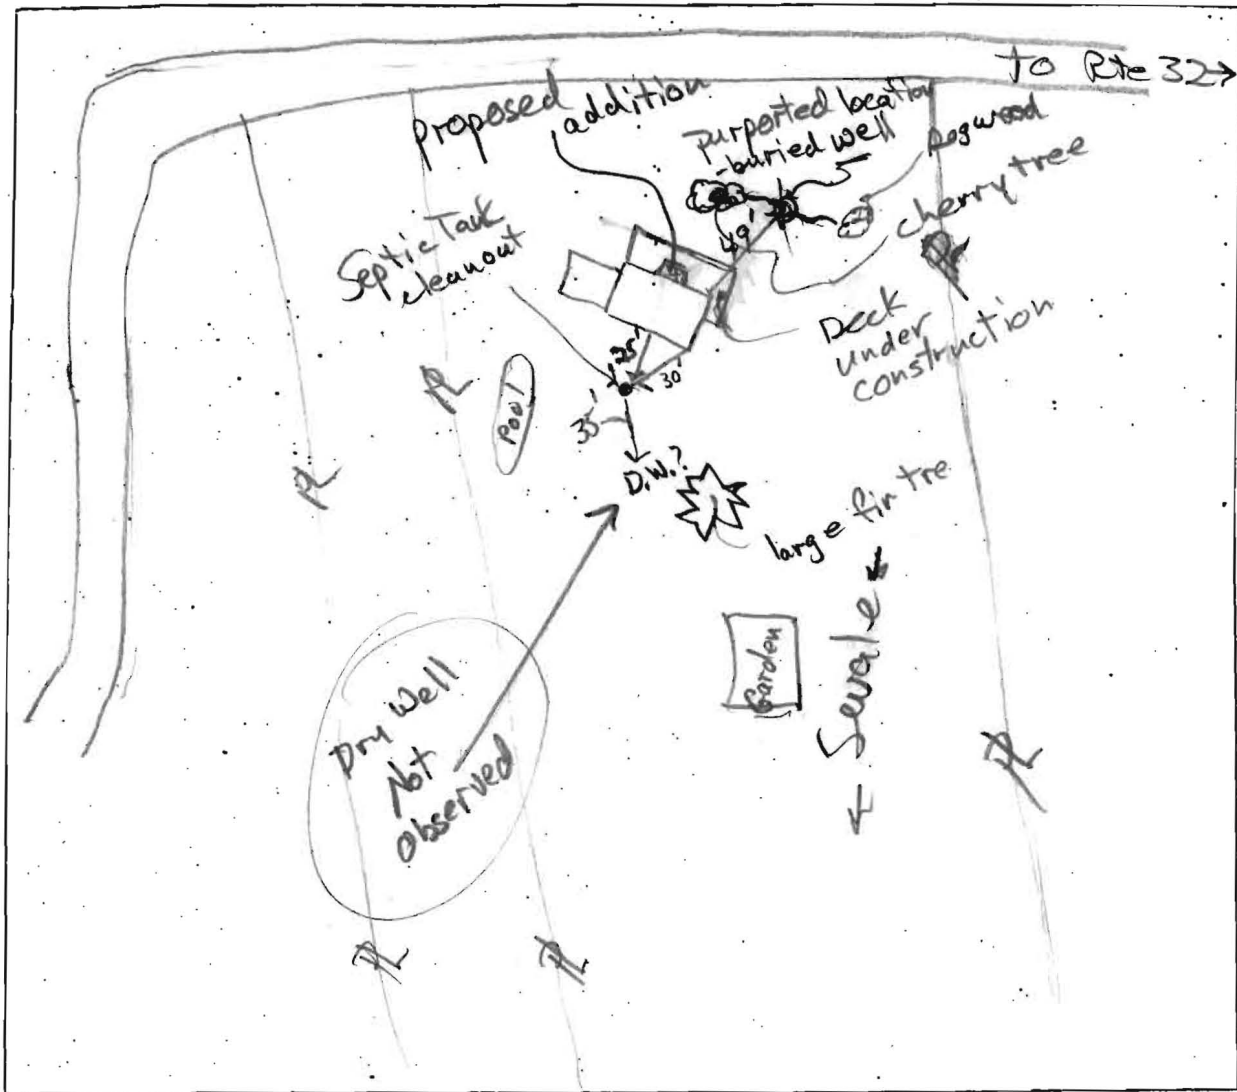 to Rte 32→
proposed
addition
purported location
-buried well
Dogwood
cherry tree
Septic Tank
cleanout
49'
PL
Deck
under
construction
25'
30'
PL
pool
35'
D.W.?
PL
large fir tre
Garden
← Swale ←
Dry Well
Not
observed
PL
PL
PL